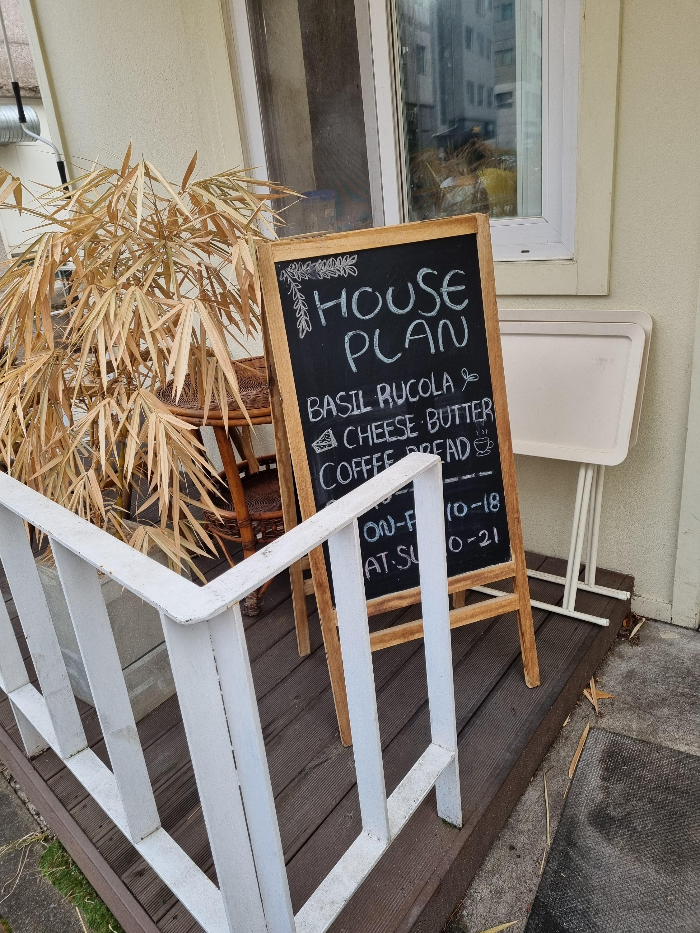 HOUSE
PLAN
BASIL·RUCOLA
CHEESE·BUTTER
COFFEE BREAD
10-18